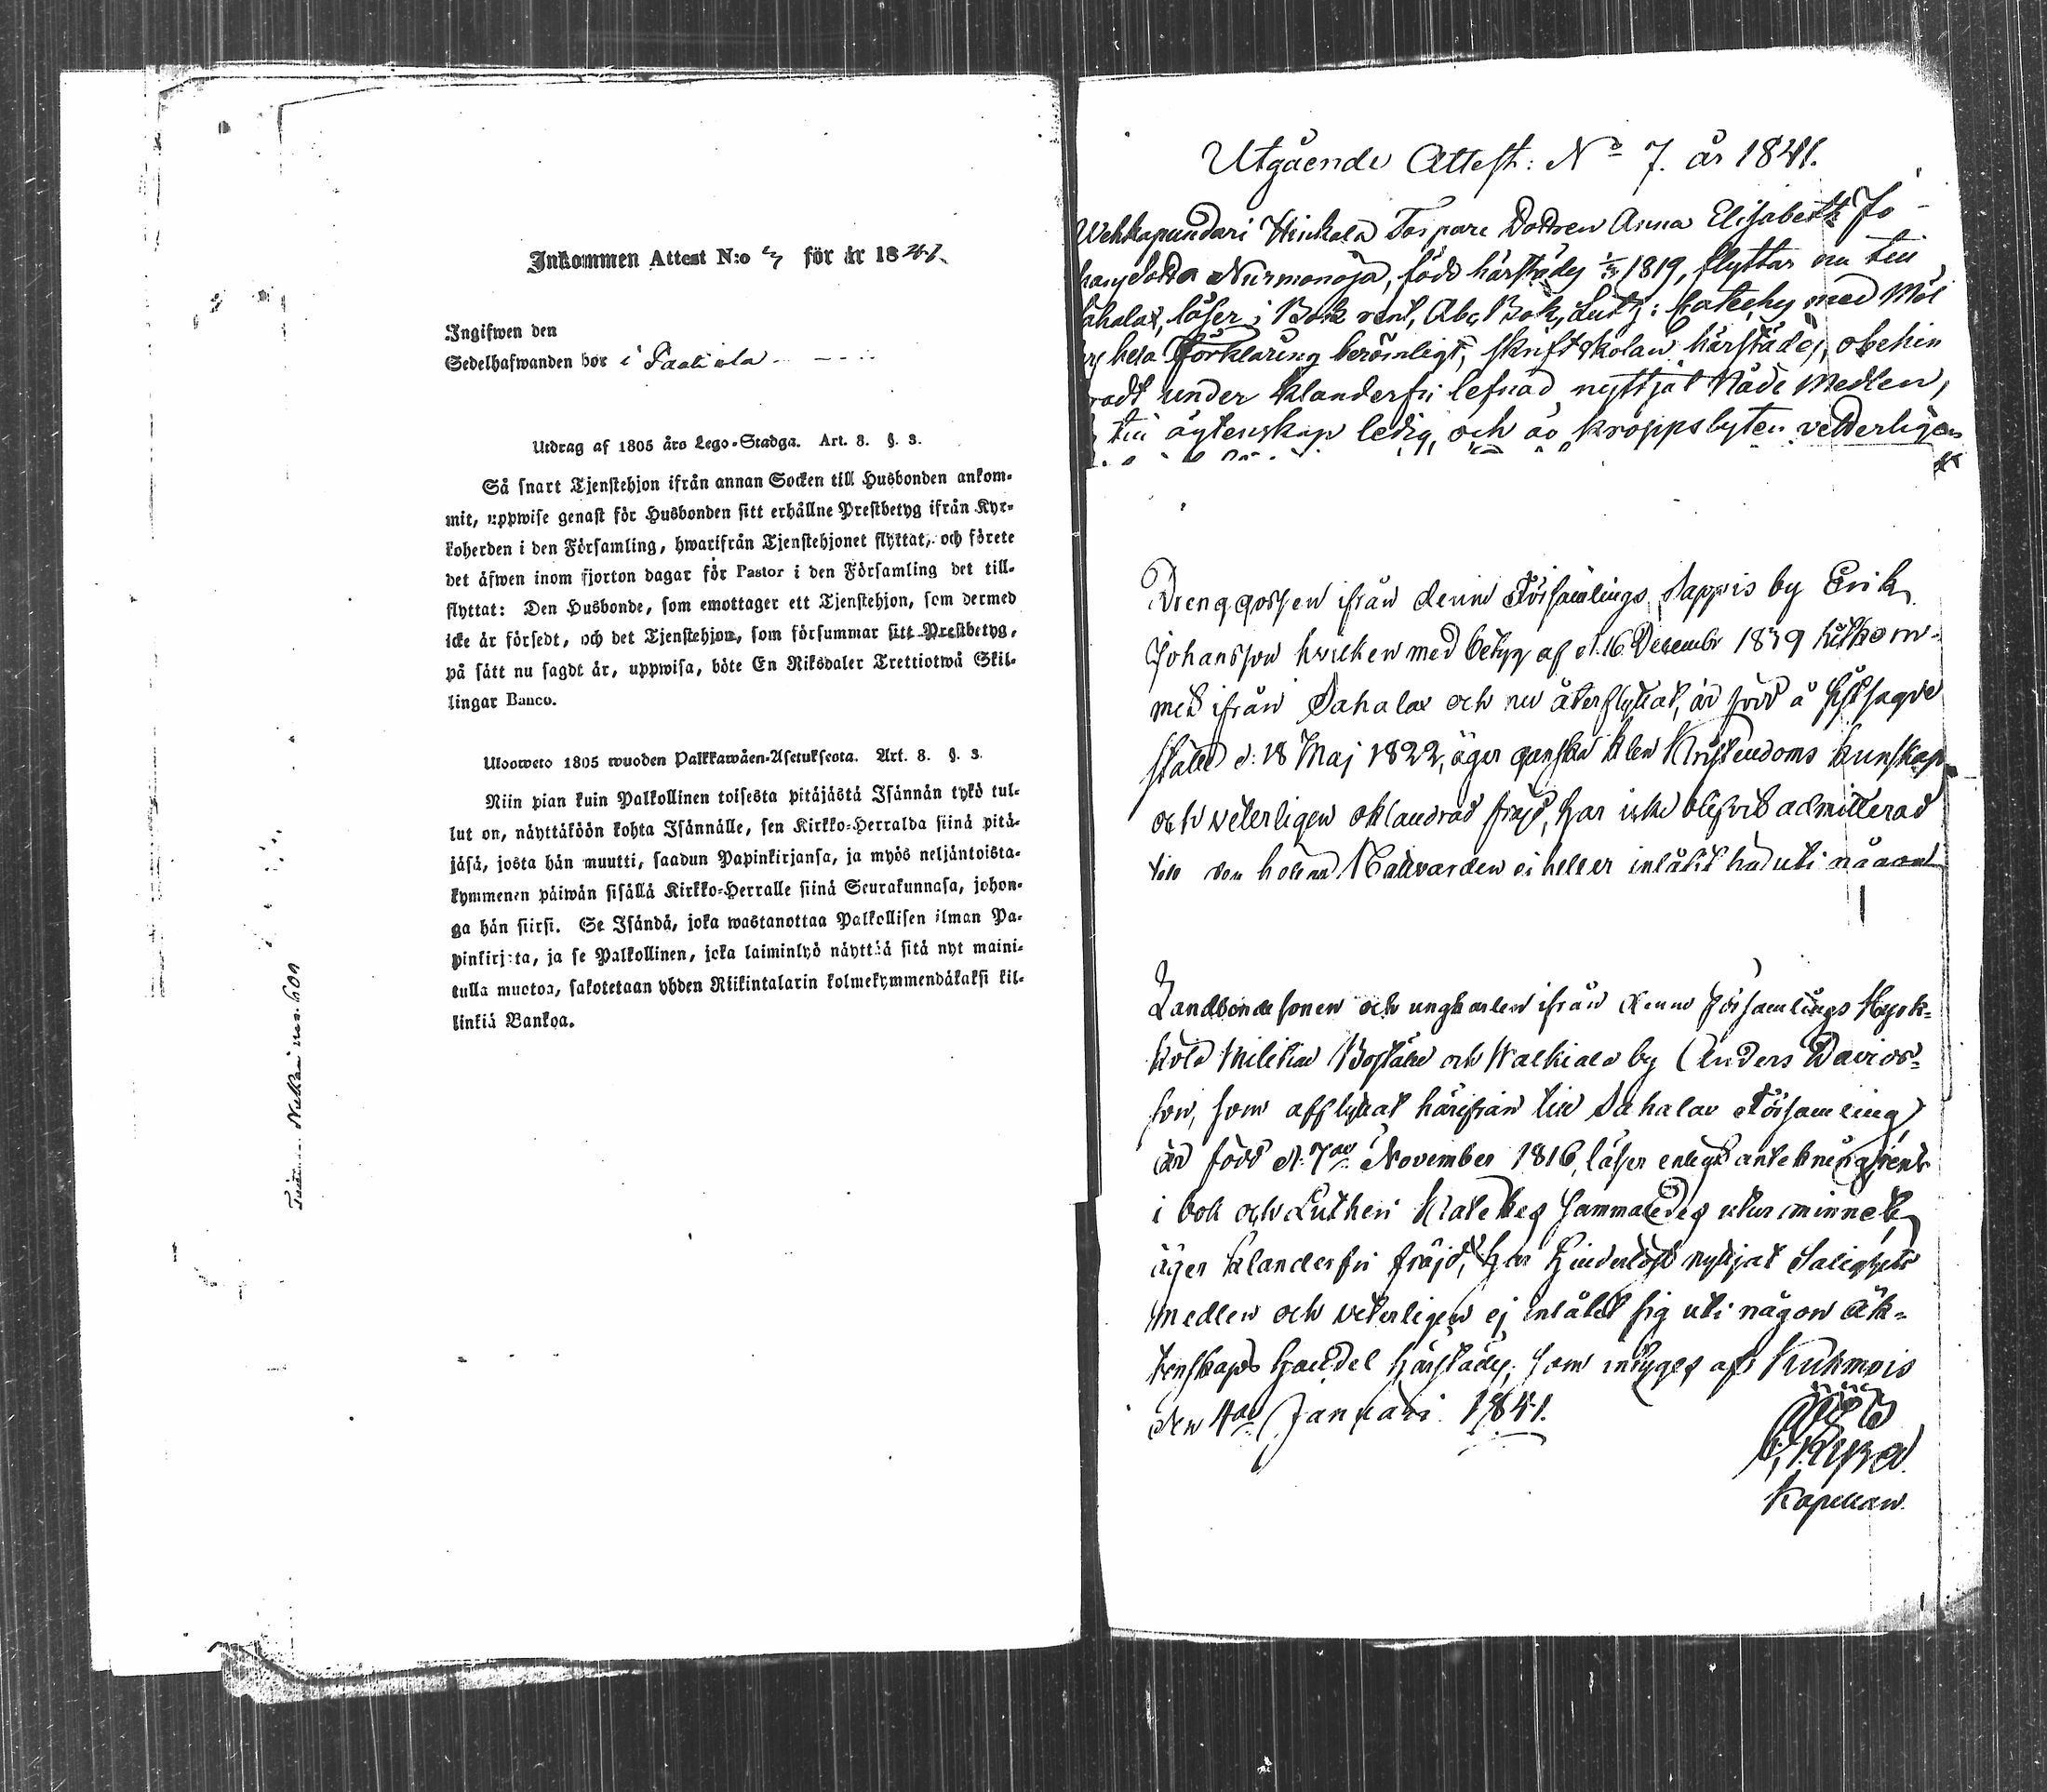 Inkommen Attest N:o för år 1841.
Ingifwen den
Sedelhafwanden bor i
Utdrag af 1805 års Lego-Stadga. Art. 8. §. 3.
Så snart Tjenstehjon ifrån annan Socken till Husbonden ankom-
mit, uppwise genast för Husbonden sitt erhållne Prestbetyg ifrån Kyr-
koherden i den Församling, hwarifrån Tjenstehjonet flyttat, och förete
det äfwen inom fjorton dagar för Pastor i den Församling det till-
flyttat: Den Husbonde, som emottager ett Tjenstehjon, som dermed
icke är försedt, och det Tjenstehjon, som försummar sitt Prestbetyg,
på sätt nu sagdt är, uppwisa, böte En Riksdaler Trettiotwå Skil-
lingar Banco.
Uloosweto 1805 wuoden Palkkawäen-Asetuksesta. Art. 8. §. 3.
Niin pian kuin Palkollinen toisesta pitäjästä Isännän tykö tul-
lut on, näyttäköön kohta Isännälle, sen Kirkko-Herralda siinä pitä-
jäsä, josta hän muutti, saadun Papinkirjansa, ja myös neljäntoista-
kymmenen päiwän sisällä Kirkko-Herralle siinä Seurakunnasa, johon-
ga hän siirsi. Se Isändä, joka wastanottaa Palkollisen ilman Pa-
pinkirjata, ja se Palkollinen, joka laiminlyö näyttää sitä nyt maini-
tulla muotoa, sakotetaan yhden Riikintalarin kolmekymmendäkaksi kil-
linkiä Bankoa.
Utgående Attest: No 7. år 1841.
Wehkapundari Hinkala Torpare Dottren Anna Elisabeth Jo-
hansdotra Nurmonoja, född härstädes 1819, flyttar nu till
Sahalax, läser i Bok rent, Abc Bok, Luth: Cateches med Möl
hela Förklaring berömligt, skriftskolan härstädes, obehin
radt under klanderfri lefnad nyttjat Nåde Medlen,
till äktenskap ledig, och av kroppslyten vetterligen
Drenggossen ifrån denne Församlings Sappis by Erik
Johansson hvilken med betyg af d. 16 December 1839 hitkom-
met ifrån Sahalax och nu återflyttat, är född å sistsagde
ställe d: 18 Maj 1822, äger ganska klen Kristendoms kunskap
och veterligen oklandrad fräjd, har icke blifvit admitterad
till den heliga Nattvarden ej heller inlåtit sig uti någont
Landbondesonen och ungkarlen ifrån denne församlings Hyrk-
kölä Militiae Boställe och Walkiala by Anders Davids-
son, som afflyttat härifrån till Sahalax Församling
är född d. 7de November 1816, läser enligt antekning rent
i bok och Lutheri Kateches sammaledes utur minnet,
äger klanderfri fräjd, har hinderlöst nyttjat Salighets
medlen och veterligen ej inlåtit sig uti någon äk-
tenskaps handel härstädes; som intyges af Kuhmois
den 4de Januari 1841.
Kapellan.